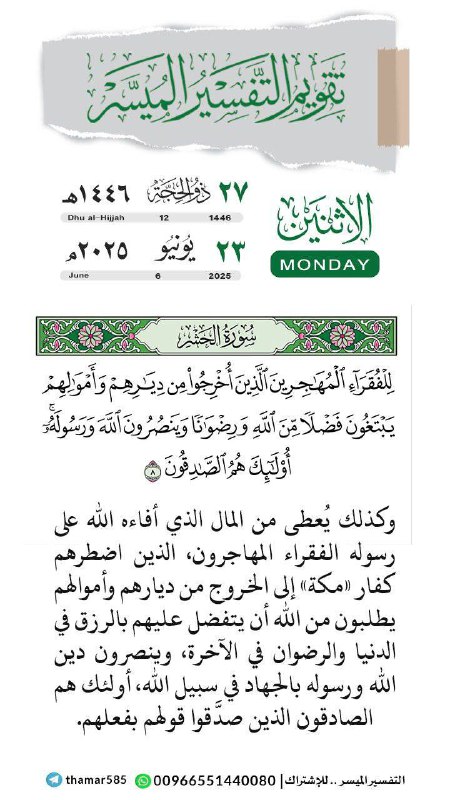 تقويم التفسير الميسر
الاثنين
MONDAY
٢٧ ذو الحجة ١٤٤٦هـ
Dhu al-Hijjah 12 1446
٢٣ يونيو ٢٠٢٥م
June 6 2025
سورة الحشر
لِلْفُقَرَآءِ ٱلْمُهَٰجِرِينَ ٱلَّذِينَ أُخْرِجُوا۟ مِن دِيَٰرِهِمْ وَأَمْوَٰلِهِمْ
يَبْتَغُونَ فَضْلًا مِّنَ ٱللَّهِ وَرِضْوَٰنًا وَيَنصُرُونَ ٱللَّهَ وَرَسُولَهُۥٓ ۚ
أُو۟لَٰٓئِكَ هُمُ ٱلصَّٰدِقُونَ ٨
وكذلك يُعطى من المال الذي أفاءه الله على
رسوله الفقراء المهاجرون، الذين اضطرهم
كفار «مكة» إلى الخروج من ديارهم وأموالهم
يطلبون من الله أن يتفضل عليهم بالرزق في
الدنيا والرضوان في الآخرة، وينصرون دين
الله ورسوله بالجهاد في سبيل الله، أولئك هم
الصادقون الذين صدَّقوا قولهم بفعلهم.
التفسير الميسر .. للإشتراك | 00966551440080 thamar585